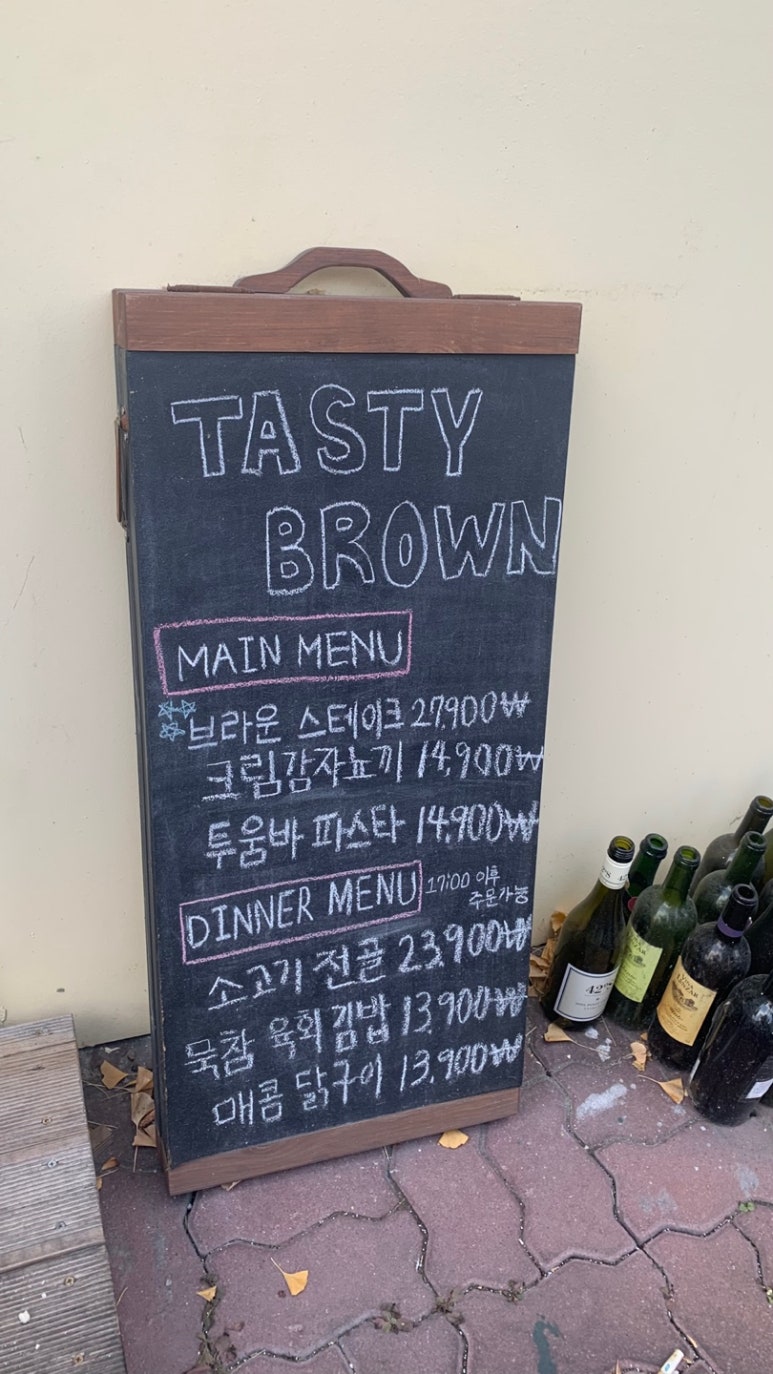 TASTY
BROWN
MAIN MENU
브라운 스테이크 27,900₩
크림감자뇨끼 14,900₩
투움바 파스타 14,900₩
DINNER MENU 17:00 이후
주문가능
소고기 전골 23,900₩
묵참 육회김밥 13,900₩
매콤 닭구이 13,900₩
42°S